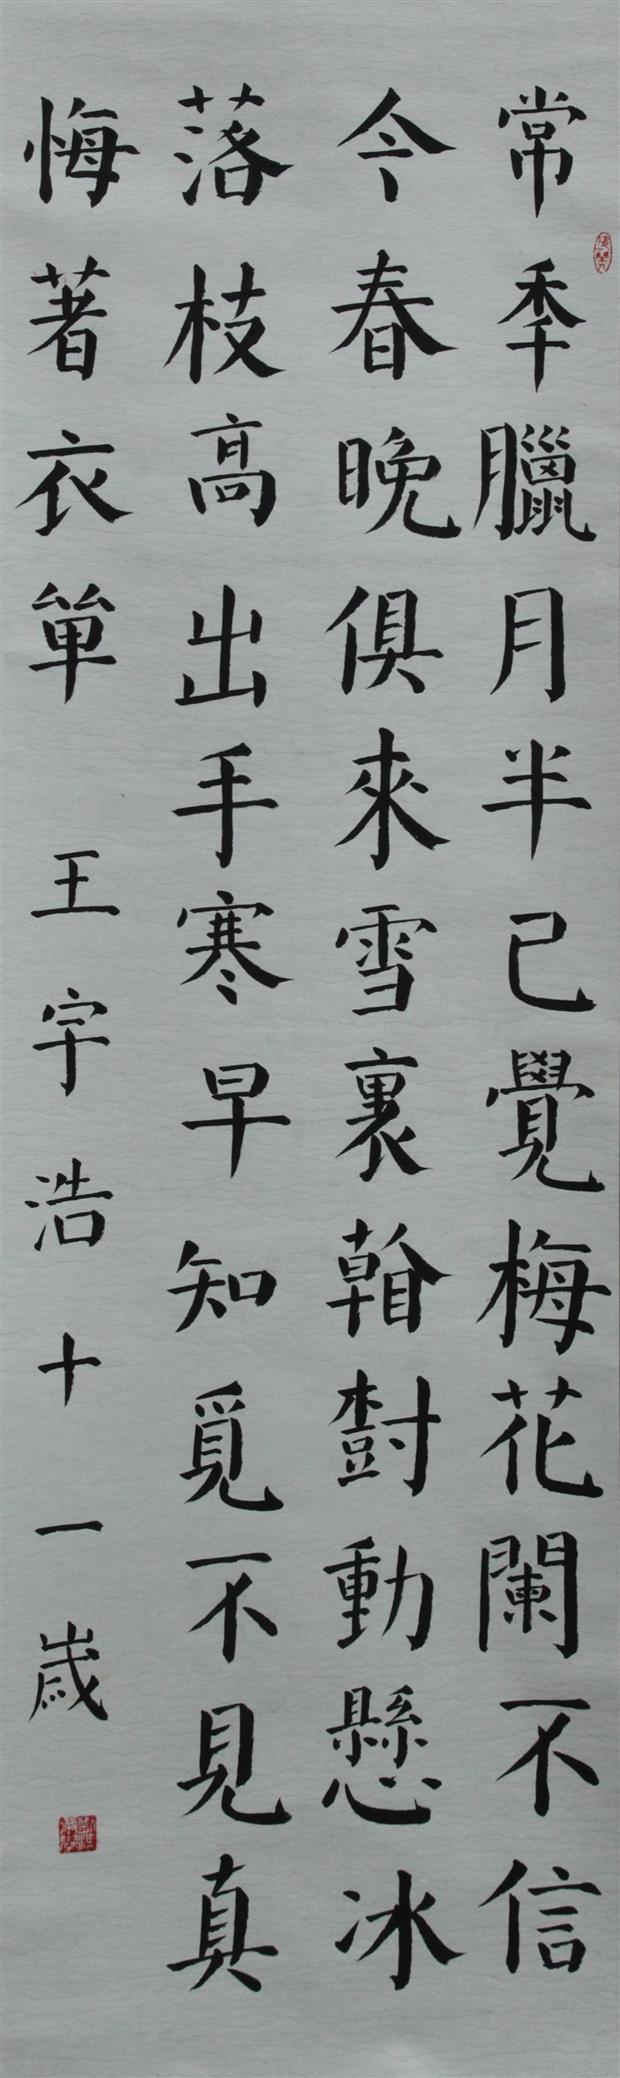 常秊臘月半已覺梅花闌不信
今春晚俱來雪裏看樹動懸冰
落枝高出手寒早知覓不見真
悔著衣單 王宇浩十一歲